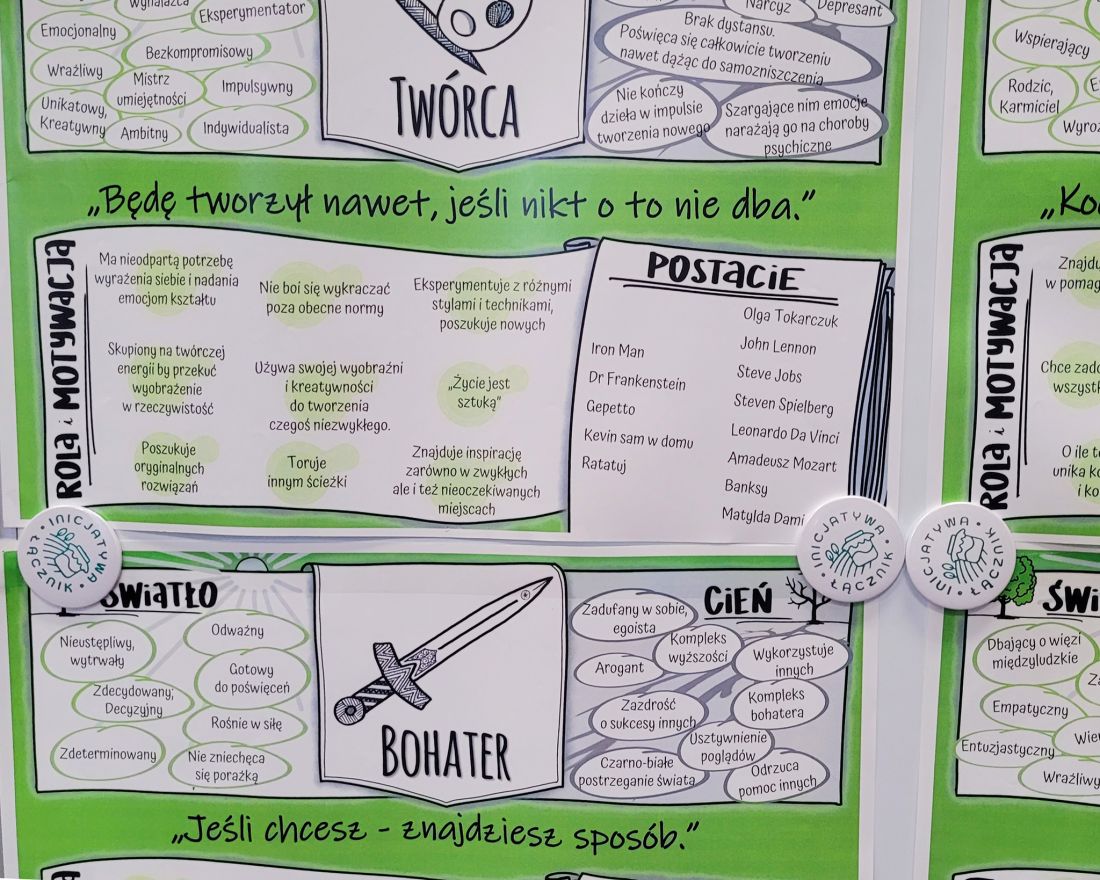 Wynalazca
Eksperymentator
Emocjonalny
Bezkompromisowy
Wrażliwy
Mistrz
umiejętności
Impulsywny
Unikatowy,
Kreatywny
Ambitny
Indywidualista
TWÓRCA
Narcyz
Depresant
Brak dystansu.
Poświęca się całkowicie tworzeniu
nawet dążąc do samozniszczenia
Nie kończy
dzieła w impulsie
tworzenia nowego
Szargające nim emocje
narażają go na choroby
psychiczne
Wspierający
Rodzic,
Karmiciel
„Będę tworzył nawet, jeśli nikt o to nie dba.”
ROLA i MOTYWACJA
Ma nieodpartą potrzebę
wyrażenia siebie i nadania
emocjom kształtu
Nie boi się wykraczać
poza obecne normy
Eksperymentuje z różnymi
stylami i technikami,
poszukuje nowych
Skupiony na twórczej
energii by przekuć
wyobrażenie
w rzeczywistość
Używa swojej wyobraźni
i kreatywności
do tworzenia
czegoś niezwykłego.
„Życie jest
sztuką”
Poszukuje
oryginalnych
rozwiązań
Toruje
innym ścieżki
Znajduje inspirację
zarówno w zwykłych
ale i też nieoczekiwanych
miejscach
POSTACIE
Iron Man
Dr Frankenstein
Gepetto
Kevin sam w domu
Ratatuj
Olga Tokarczuk
John Lennon
Steve Jobs
Steven Spielberg
Leonardo Da Vinci
Amadeusz Mozart
Banksy
Matylda Dami
ROLA i MOTYWACJA
w pomag
Chce zado
wszystk
O ile t
unika k
i ko
INICJATYWA • ŁĄCZNIK •
INICJATYWA • ŁĄCZNIK •
INICJATYWA • ŁĄCZNIK •
ŚWIATŁO
Nieustępliwy,
wytrwały
Odważny
Gotowy
do poświęceń
Zdecydowany,
Decyzyjny
Rośnie w siłę
Zdeterminowany
Nie zniechęca
się porażką
BOHATER
CIEŃ
Zadufany w sobie,
egoista
Kompleks
wyższości
Wykorzystuje
innych
Arogant
Zazdrość
o sukcesy innych
Kompleks
bohatera
Usztywnienie
poglądów
Czarno-białe
postrzeganie świata
Odrzuca
pomoc innych
„Jeśli chcesz - znajdziesz sposób.”
ŚWI
Dbający o więzi
międzyludzkie
Empatyczny
Entuzjastyczny
Wrażliwy